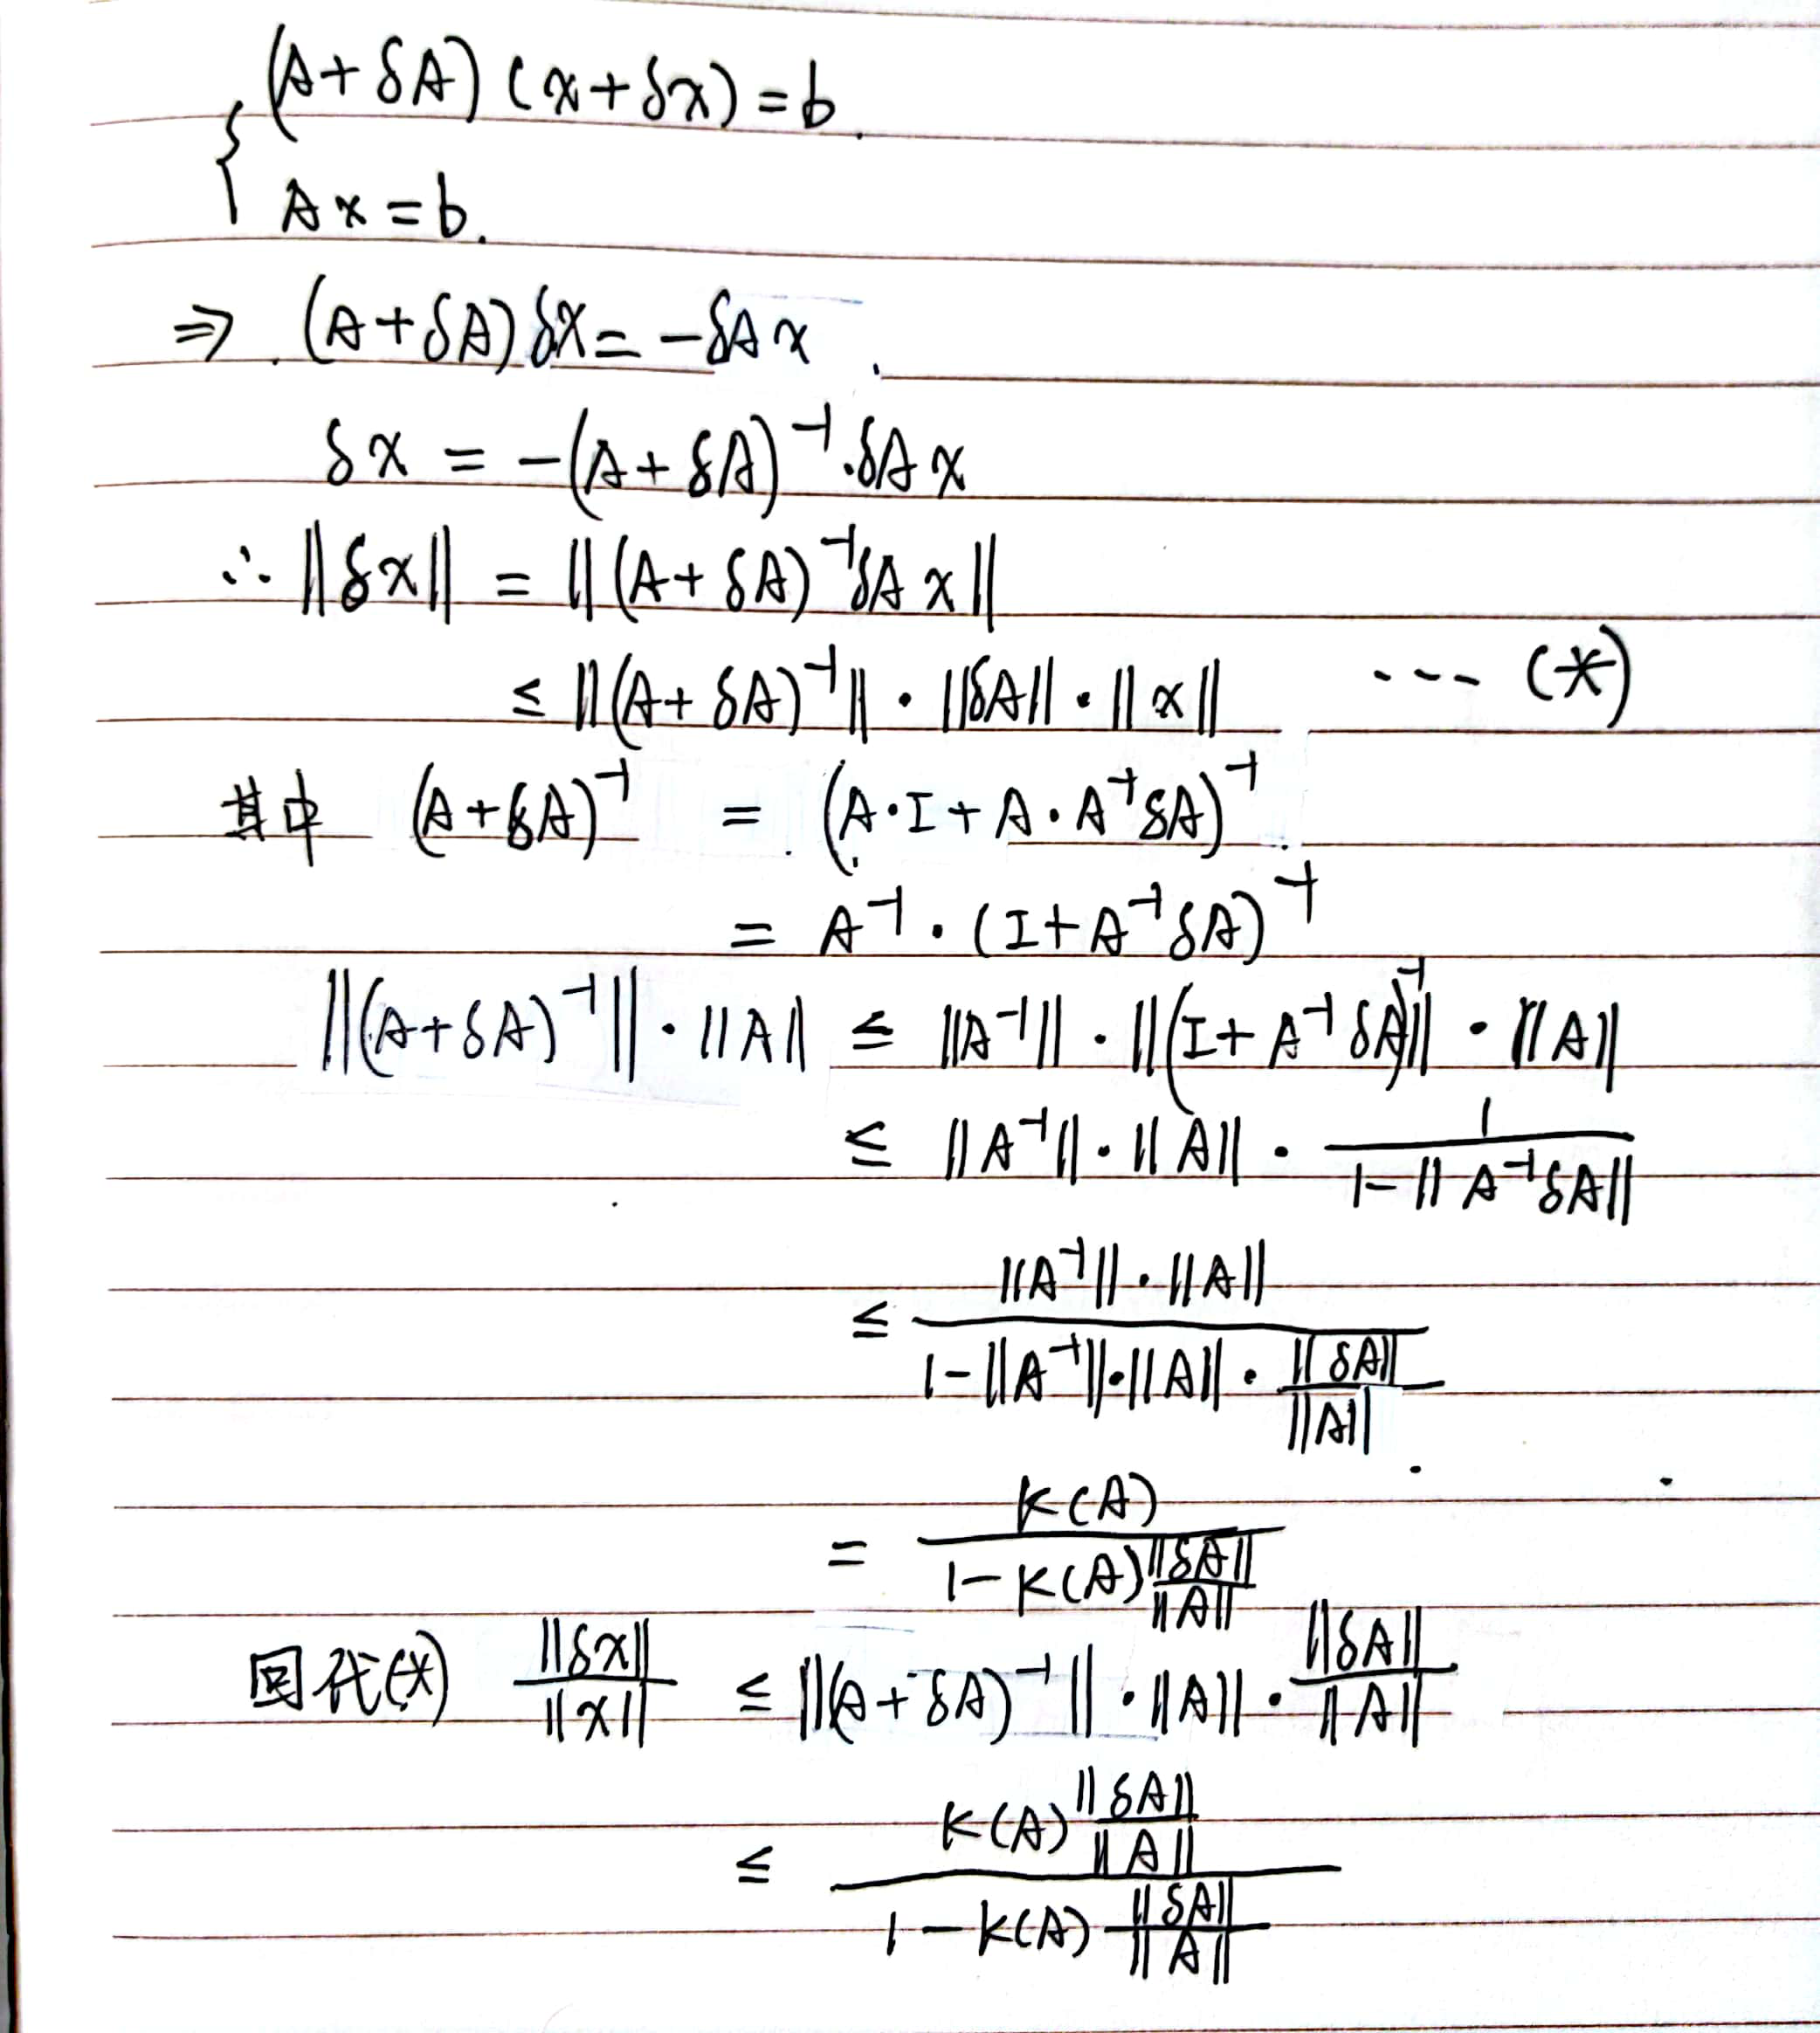 (A+δA)(x+δx)=b.
{ Ax=b.
⇒ (A+δA)δx=-δAx.
δx = -(A+δA)⁻¹·δAx
∴ ||δx|| = ||(A+δA)⁻¹δAx||
≤ ||(A+δA)⁻¹||·||δA||·||x|| ---- (*)
其中 (A+δA)⁻¹ = (A·I+A·A⁻¹δA)⁻¹
= A⁻¹·(I+A⁻¹δA)⁻¹
||(A+δA)⁻¹||·||A|| ≤ ||A⁻¹||·||(I+A⁻¹δA)⁻¹||·||A||
≤ ||A⁻¹||·||A||·\frac{1}{1-||A⁻¹δA||}
≤ \frac{||A⁻¹||·||A||}{1-||A⁻¹||·||A||·\frac{||δA||}{||A||}}
= \frac{K(A)}{1-K(A)\frac{||δA||}{||A||}}
回代(*) \frac{||δx||}{||x||} ≤ ||(A+δA)⁻¹||·||A||·\frac{||δA||}{||A||}
≤ \frac{K(A)\frac{||δA||}{||A||}}{1-K(A)\frac{||δA||}{||A||}}